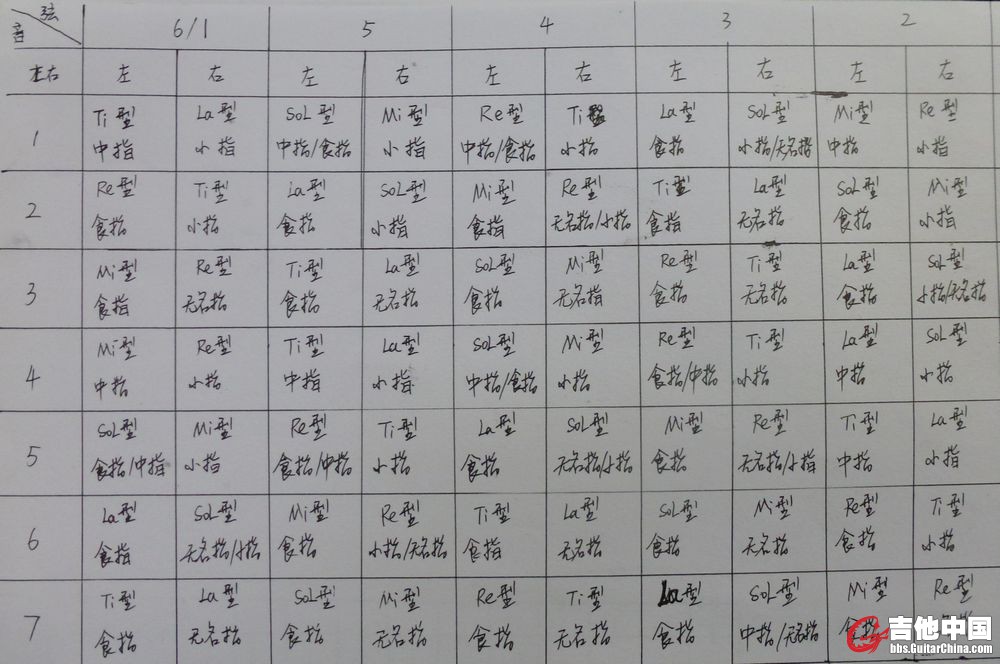 弦
音
6/1 5 4 3 2
左右 左 右 左 右 左 右 左 右 左 右
1 Ti型 La型 SoL型 Mi型 Re型 Ti型 La型 SoL型 Mi型 Re型
中指 小指 中指/食指 小指 中指/食指 小指 食指 小指/无名指 中指 小指
2 Re型 Ti型 La型 SoL型 Mi型 Re型 Ti型 La型 SoL型 Mi型
食指 小指 食指 小指 食指 无名指/小指 食指 无名指 食指 小指
3 Mi型 Re型 Ti型 La型 SoL型 Mi型 Re型 Ti型 La型 SoL型
食指 无名指 食指 无名指 食指 无名指 食指 无名指 食指 小指/无名指
4 Mi型 Re型 Ti型 La型 SoL型 Mi型 Re型 Ti型 La型 SoL型
中指 小指 中指 小指 中指/食指 小指 食指/中指 小指 中指 小指
5 SoL型 Mi型 Re型 Ti型 La型 SoL型 Mi型 Re型 Ti型 La型
食指/中指 小指 食指/中指 小指 食指 无名指/小指 食指 无名指/小指 中指 小指
6 La型 SoL型 Mi型 Re型 Ti型 La型 SoL型 Mi型 Re型 Ti型
食指 无名指/小指 食指 小指/无名指 食指 无名指 食指 无名指 食指 小指
7 Ti型 La型 SoL型 Mi型 Re型 Ti型 La型 SoL型 Mi型 Re型
食指 无名指 食指 无名指 食指 无名指 食指 中指/无名指 食指
吉他中国
bbs.GuitarChina.com